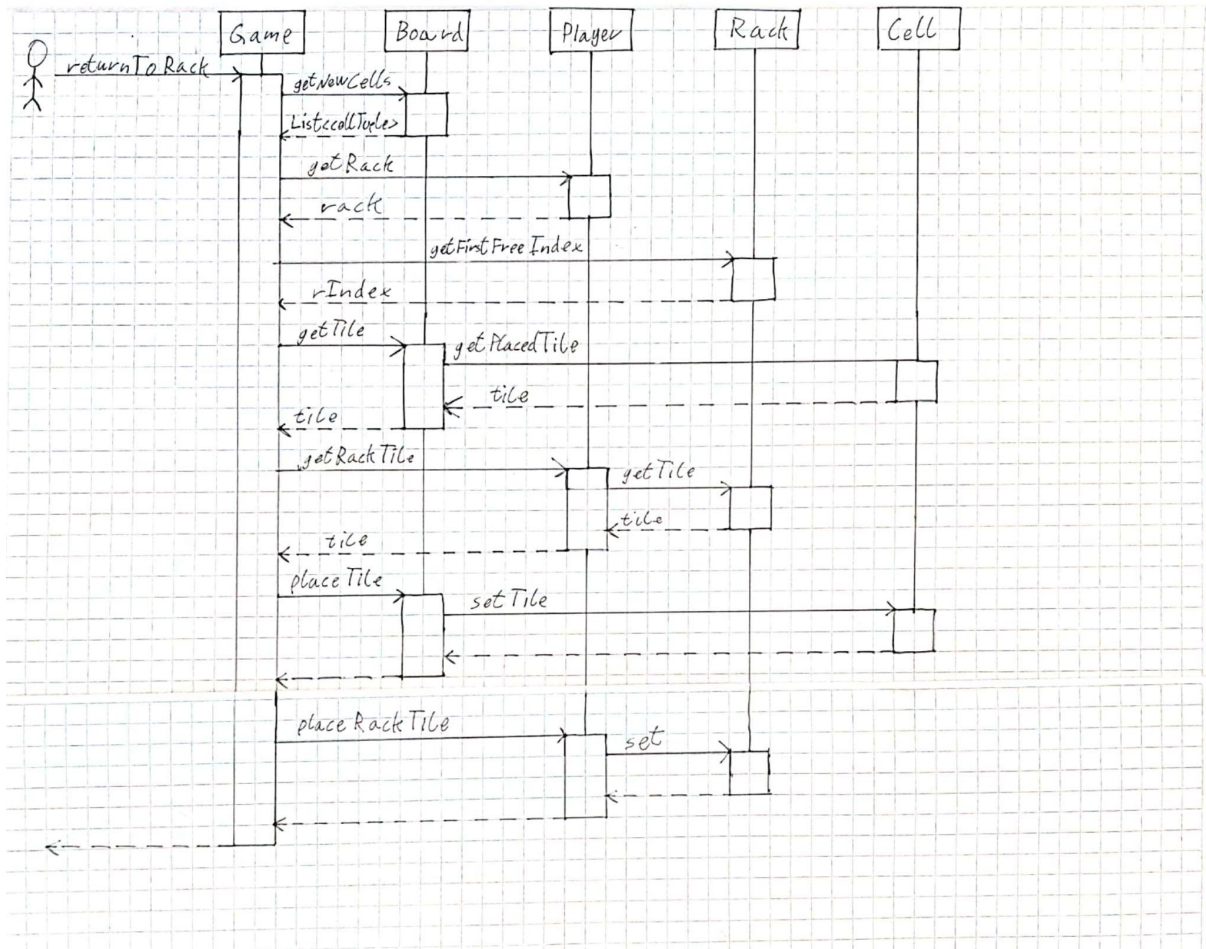 Game
Board
Player
Rack
Cell
returnToRack
getNewCells
getRack
rack
getFirstFreeIndex
rIndex
getTile
getPlacedTile
tile
tile
getRackTile
getTile
tile
tile
placeTile
setTile
placeRackTile
set